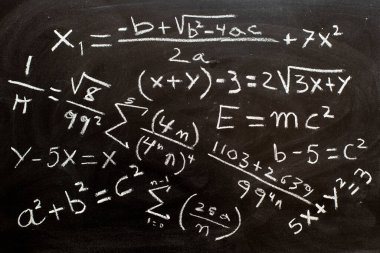 x₁ = (-b + √(b² - 4ac)) / 2a + 7x²
1/π = √8 / 99²
(x + y) - 3 = 2√(3x + y)
5 ∑ (4n) / (4ⁿ n)⁴
E = mc²
y - 5x = x
1103 + 263g / 99⁴ⁿ
b - 5 = c²
a² + b² = c²
n-1 ∑ i=0 (25a / n)
5x + y² = 3